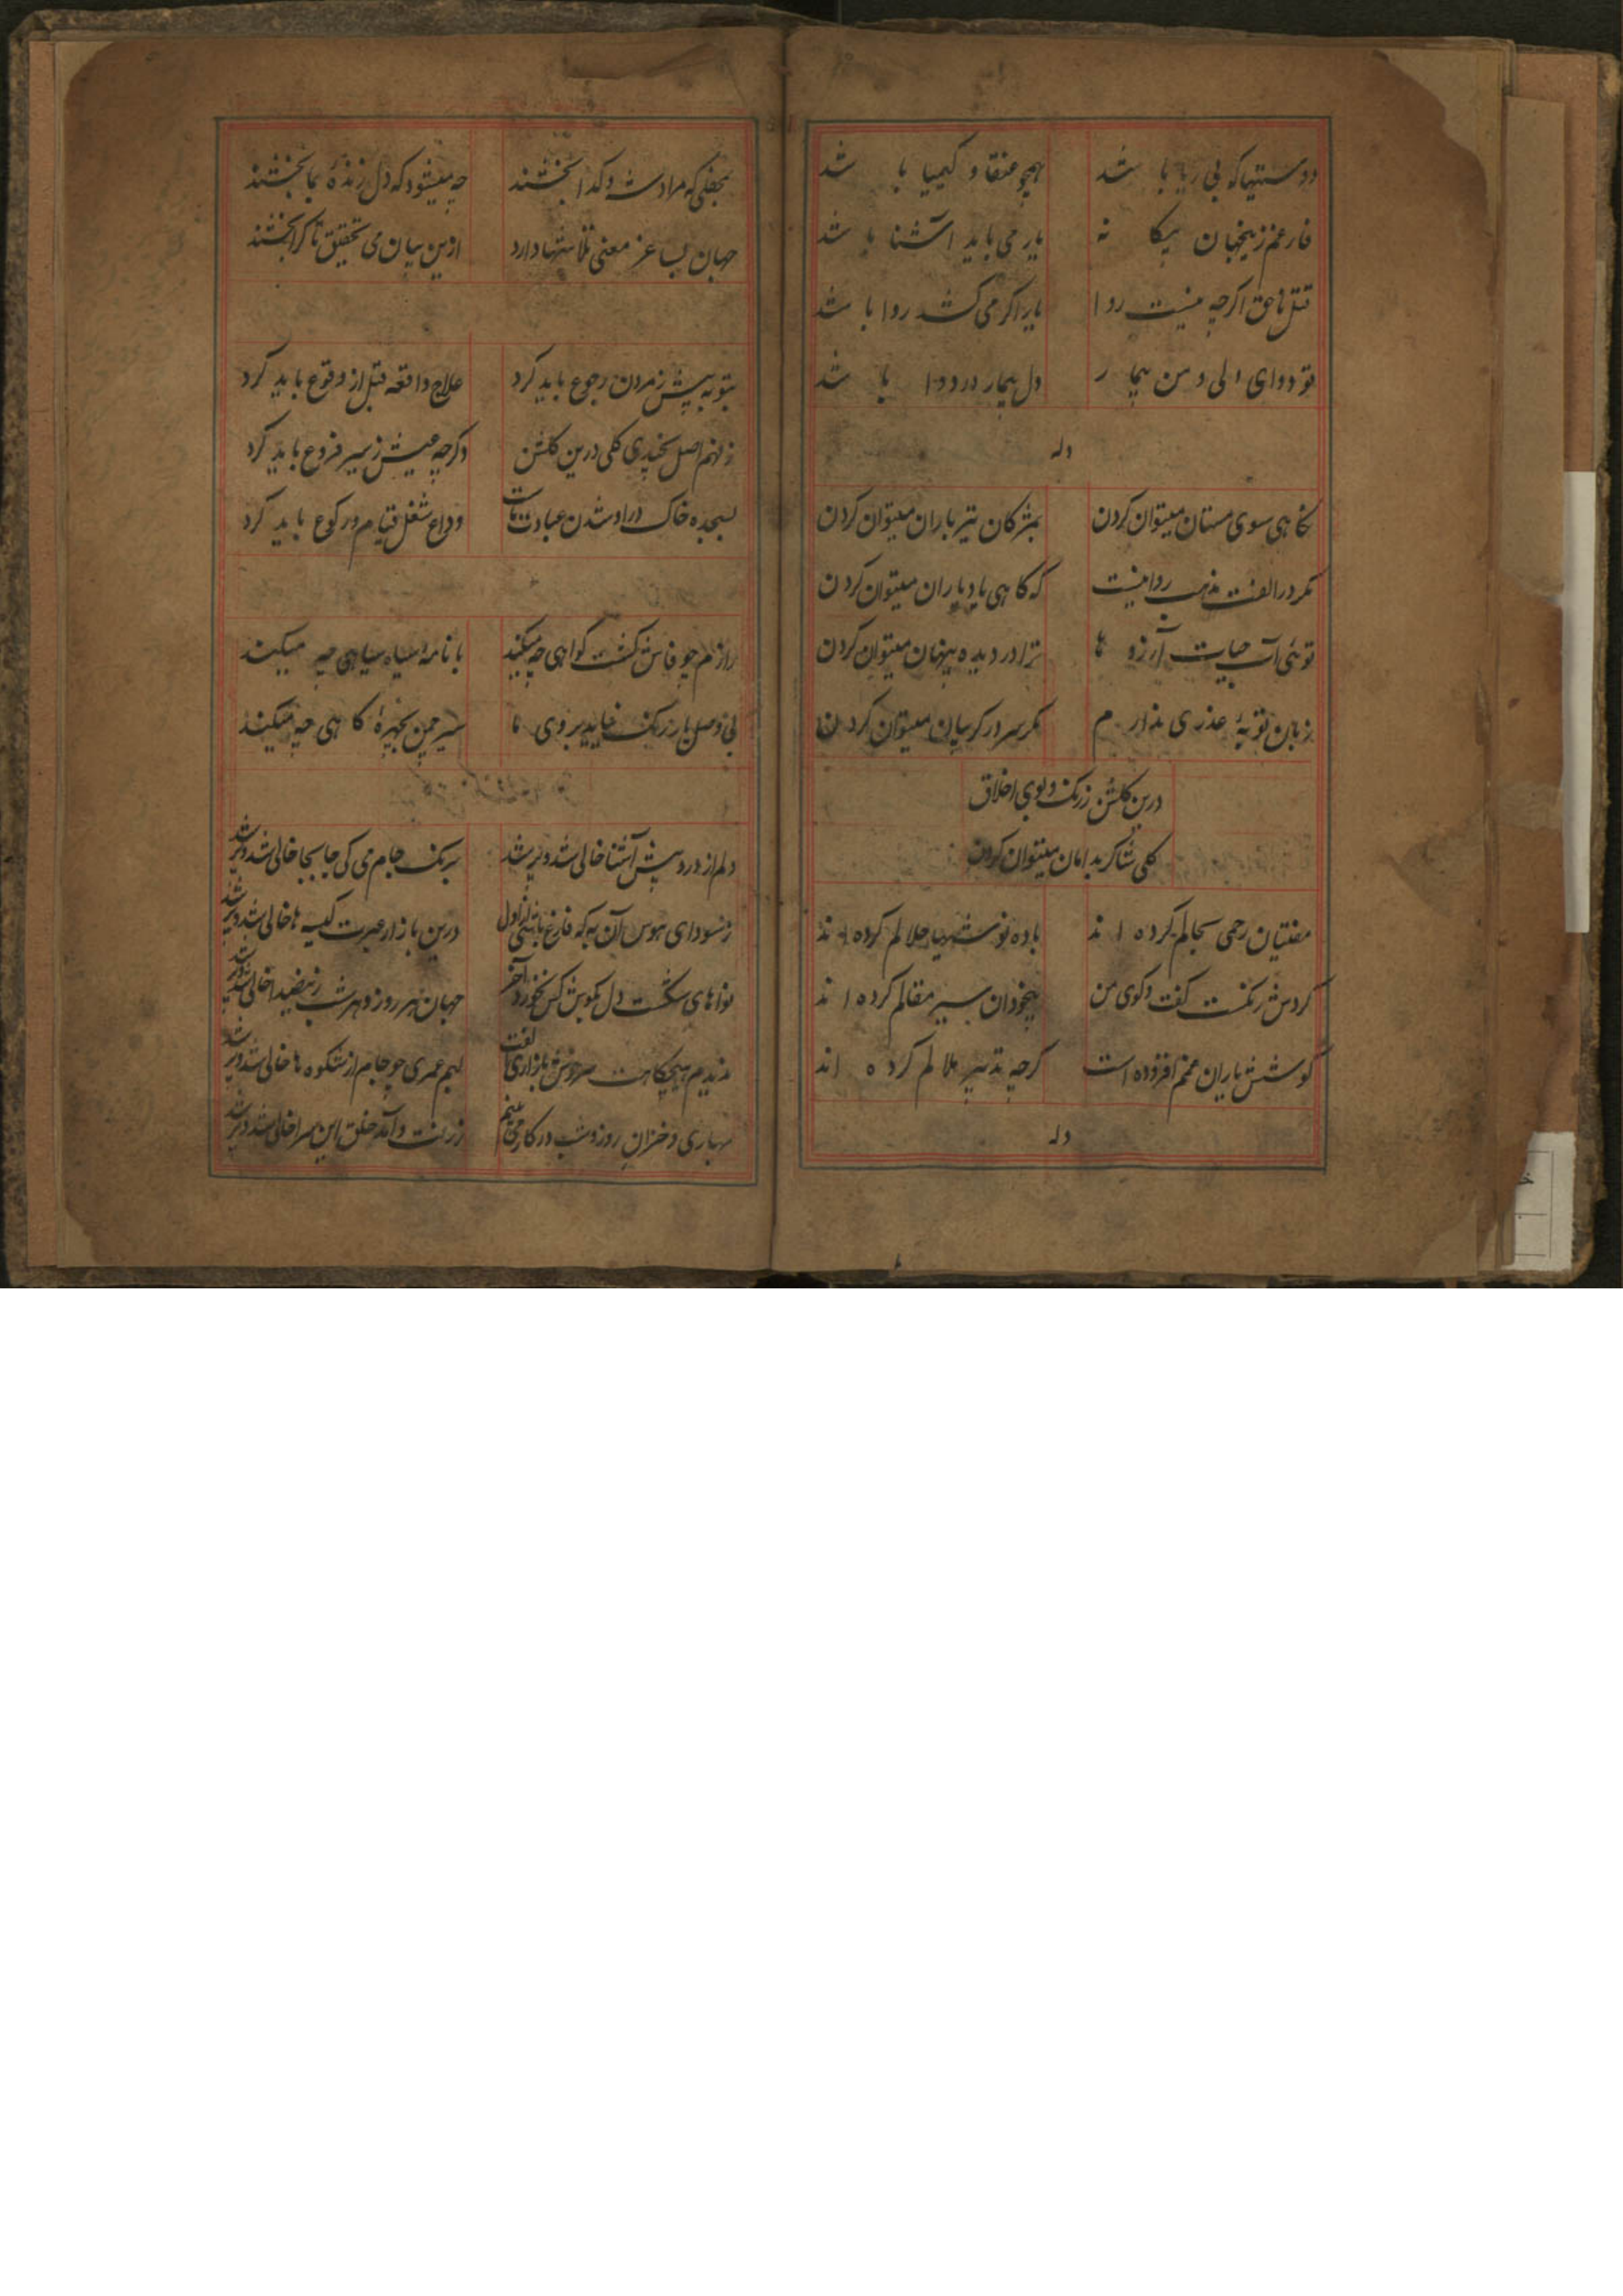 دوستیها که بی ریا با شد همچو عنقا و کیمیا با شد
فارغم زینجهان بیکا نه یار می باید آشنا با شد
قتل ناحق اکرچه نیست روا یار اکر می کشد روا با شد
تو دوای دلی و من بیما ر دل بیمار در دوا با شد
وله
نکاهی سوی مستان میتوان کردن بمژکان تیر باران میتوان کردن
مکر در الفت مذهب روا نیست که کاهی یاد یاران میتوان کردن
توئی آب حیات آرزو ها ترا در دیده پنهان میتوان کردن
زبان توبهٔ عذری ندار م مکر سر در کریبان میتوان کردن
درین کلشن ز رنک و بوی اخلاق
کلی شاکر بدامان میتوان کردن
مفتیان رحمی بحالم کرده ا ند باده نوشیها حلالم کرده ا ند
کردش رنکست کفت وکوی من بیخودان سیر مقالم کرده ا ند
کوشش یاران غمم افزوده است کرچه تدبیر ملالم کرده اند
وله
بمحفلی که مرادت وکدا بخشند چه میشود که دل زنده بما بخشند
جهان بساغر معنی تلاشها دارد ازین بیان می تحقیق تا کرا بخشند
بتوبه پیش ز مردن رجوع باید کرد علاج واقعه قبل از وقوع باید کرد
ز فهم اصل کلی درین کلشن وکرچه عیش ز سیر فروع باید کرد
بسجده خاک در او شدن عبادت ماست وداع شغل قیام و رکوع باید کرد
رازم چو فاش کشت کواهی چه میکند با نامهٔ سیاه سیاهی چه میکند
بی وصل یار رنک نیاید بروی ما سیر چمن بچهرهٔ کاهی چه میکند
دلم از درد پیش آشنا خالی شد و پر شد بریک جام می کی جابجا خالی شد و پر شد
ز سودای هوس آن به که فارغ باشی از اول درین بازار عبرت کیسه ها خالی شد و پر شد
نواهای شکست دل بکوش کس نخورد آخر جهان هر روز و هر شب زینصدا خالی شد و پر شد
ندیدم هیچکاهت سر و بازاری الفت لبم عمری چو جام از شکوه ها خالی شد و پر شد
بهاری و خزان روز و شب در کار می بینم ز رفت و آمد خلق این سرا خالی شد و پر شد